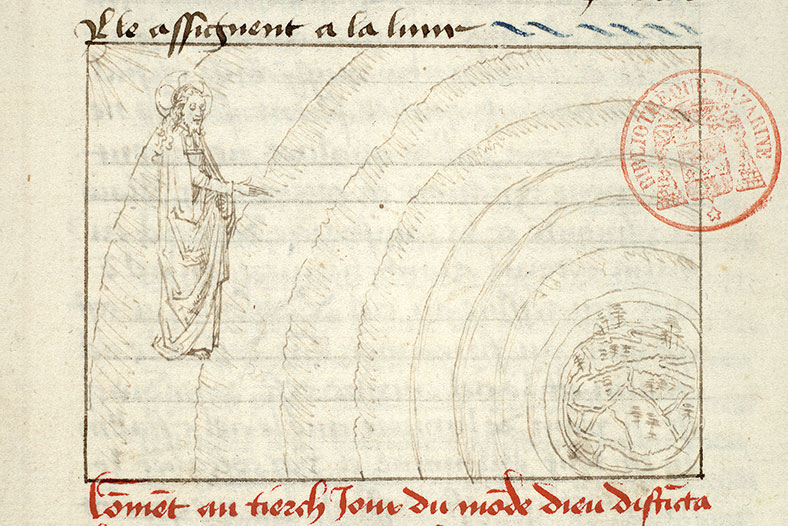 Et le assignent a la lune
BIBLIOTHEQUE MAZARINE
Cõment au tierch Jour du mõde dieu distincta